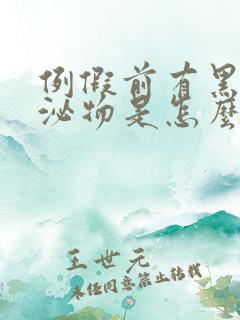 例假前有黑
泌物是怎麼
王世元
未经同意禁止转载